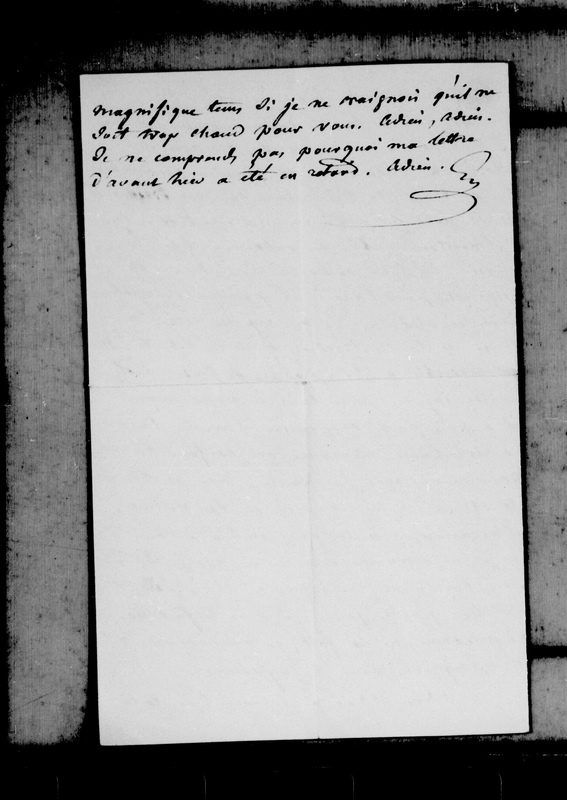 magnifique tems si je ne craignois qu'il ne
soit trop chaud pour vous. Adieu, adieu.
Je ne comprends pas pourquoi ma lettre
d'avant hier a été en retard. Adieu.